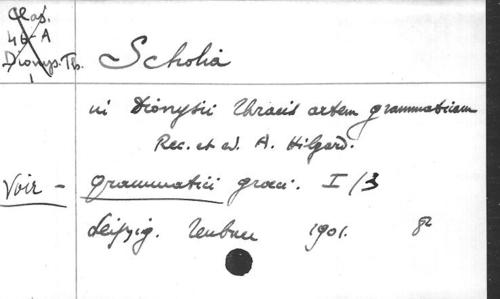 Clas.
46-A
Dionys. Th.
1
Scholia
in Dionysii Thracis artem grammaticam
Rec. et ed. A. Hilgard.
Voir - Grammatici graeci. I/3
Leipzig. Teubner 1901. 8º